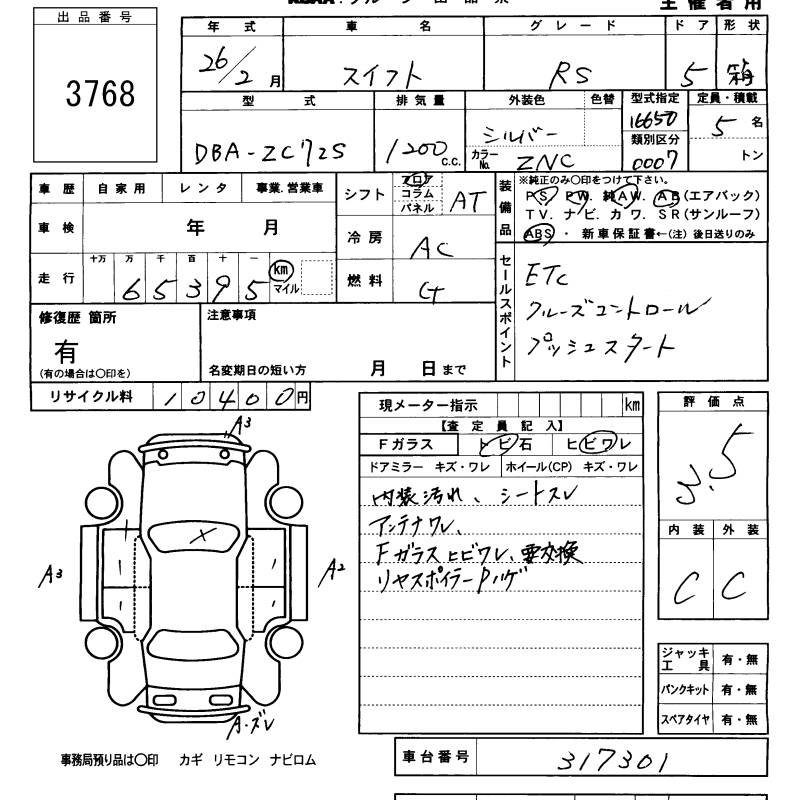 出品番号
3768
主催者用
年式 車名 グレード ドア 形状
26/2月 スイフト RS 5 箱
型式 排気量 外装色 色替 型式指定 定員・積載
DBA-ZC72S 1200 c.c. シルバー 16650 5名
カラーNo. ZNC 類別区分 0007 トン
車歴 自家用 レンタ 事業.営業車
シフト フロア コラム パネル AT
装備品 ※純正のみ〇印をつけて下さい。
PS. PW. 純AW. AB(エアバック)
TV. ナビ. カワ. SR(サンルーフ)
ABS ・ 新車保証書←(注) 後日送りのみ
車検 年 月
冷房 AC
走行 十万 万 千 百 十 一
65395 km マイル
燃料 G
セールスポイント
ETC
クルーズコントロール
プッシュスタート
修復歴 箇所
有
(有の場合は〇印を)
注意事項
名変期日の短い方 月 日まで
リサイクル料 10400円
現メーター指示 km
【査定員記入】
Fガラス トビ石 ヒビワレ
ドアミラー キズ・ワレ ホイール(CP) キズ・ワレ
内装汚れ、シートスレ
アンテナワレ、
Fガラスヒビワレ、要交換
リヤスポイラーPハゲ
評価点
3.5
内装 外装
C C
A3
A3
A2
A・ズレ
ジャッキ工具 有・無
パンクキット 有・無
スペアタイヤ 有・無
事務局預り品は〇印 カギ リモコン ナビロム
車台番号 317301